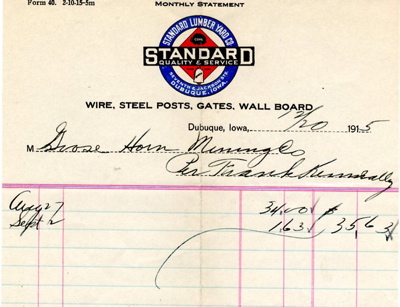 Form 40. 2-10-15-5m
MONTHLY STATEMENT
STANDARD LUMBER YARD CO.
STANDARD
QUALITY & SERVICE
SEVENTH & JACKSON STS.
DUBUQUE, IOWA.
WIRE, STEEL POSTS, GATES, WALL BOARD
Dubuque, Iowa, 12/20 1915
M Goose Horn Mining Co
Per Frank Kenneally
Aug 27 34.00
Sept 2 1.63 $ 35.63